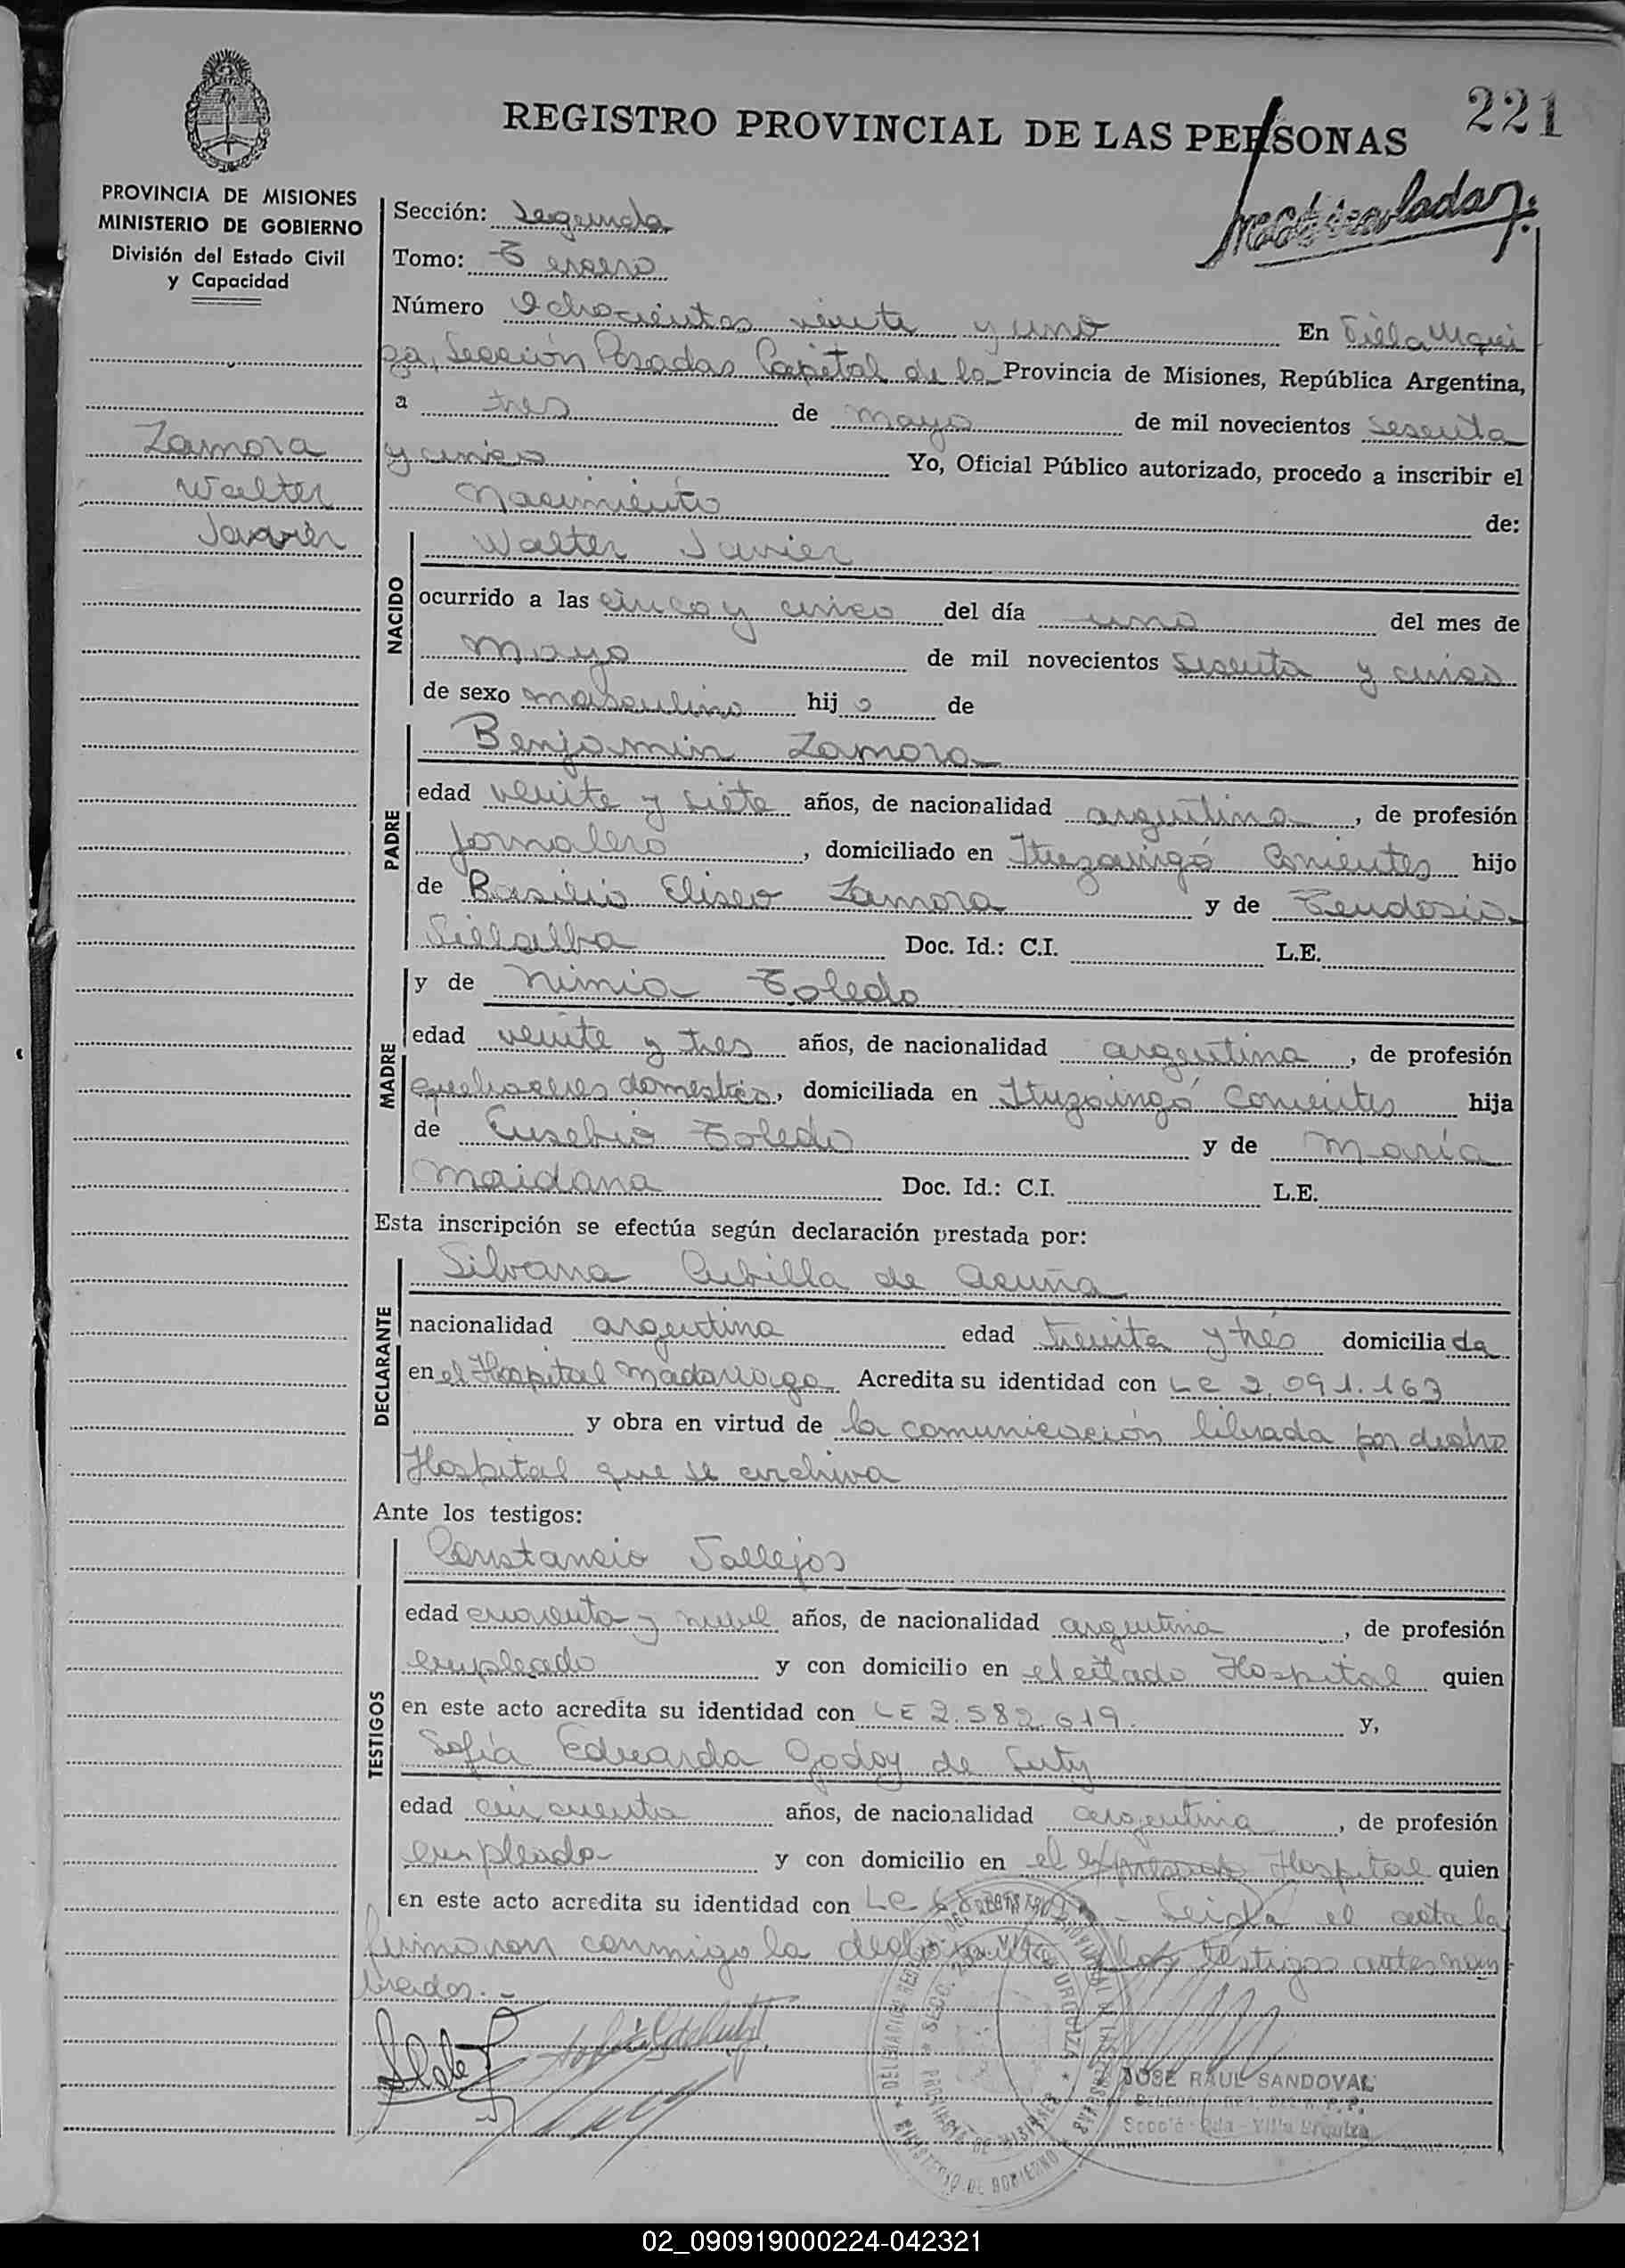 221
REGISTRO PROVINCIAL DE LAS PERSONAS
PROVINCIA DE MISIONES
MINISTERIO DE GOBIERNO
División del Estado Civil
y Capacidad
Zamora
Walter
Javier
Sección: Segunda
Tomo: Tercero
Número Ochocientos veinte y uno En Villa Urqui
za, Sección Posadas Capital de la Provincia de Misiones, República Argentina,
a tres de mayo de mil novecientos sesenta
y cinco Yo, Oficial Público autorizado, procedo a inscribir el
Nacimiento de:
NACIDO
Walter Javier
ocurrido a las cinco y cinco del día uno del mes de
mayo de mil novecientos sesenta y cinco
de sexo masculino hijo de
PADRE
Benjamin Zamora
edad veinte y siete años, de nacionalidad argentina, de profesión
jornalero, domiciliado en Ituzaingó Corrientes hijo
de Basilio Eliseo Zamora y de Teudosia
Villalba Doc. Id.: C.I. L.E.
MADRE
y de Nimia Toledo
edad veinte y tres años, de nacionalidad argentina, de profesión
quehaceres domestico, domiciliada en Ituzaingó Corrientes hija
de Eusebio Toledo y de María
Maidana Doc. Id.: C.I. L.E.
Esta inscripción se efectúa según declaración prestada por:
DECLARANTE
Silvana Cubilla de Acuña
nacionalidad argentina edad treinta y tres domiciliada
en el Hospital Madariaga Acredita su identidad con LC 2.091.163
y obra en virtud de la comunicación librada por dicho
Hospital que se archiva
Ante los testigos:
TESTIGOS
Constancio Vallejos
edad cuarenta y nueve años, de nacionalidad argentina, de profesión
empleado y con domicilio en el citado Hospital quien
en este acto acredita su identidad con LE 2.582.619. y,
Sofía Eduarda Godoy de Luty
edad cincuenta años, de nacionalidad argentina, de profesión
empleada y con domicilio en el expresado Hospital quien
en este acto acredita su identidad con LC Leida el acta la
firmaron conmigo la declarante y los testigos antes nom
brados.-
JOSE RAUL SANDOVAL
Secc'ó 2da - Villa Urquiza
02_090919000224-042321